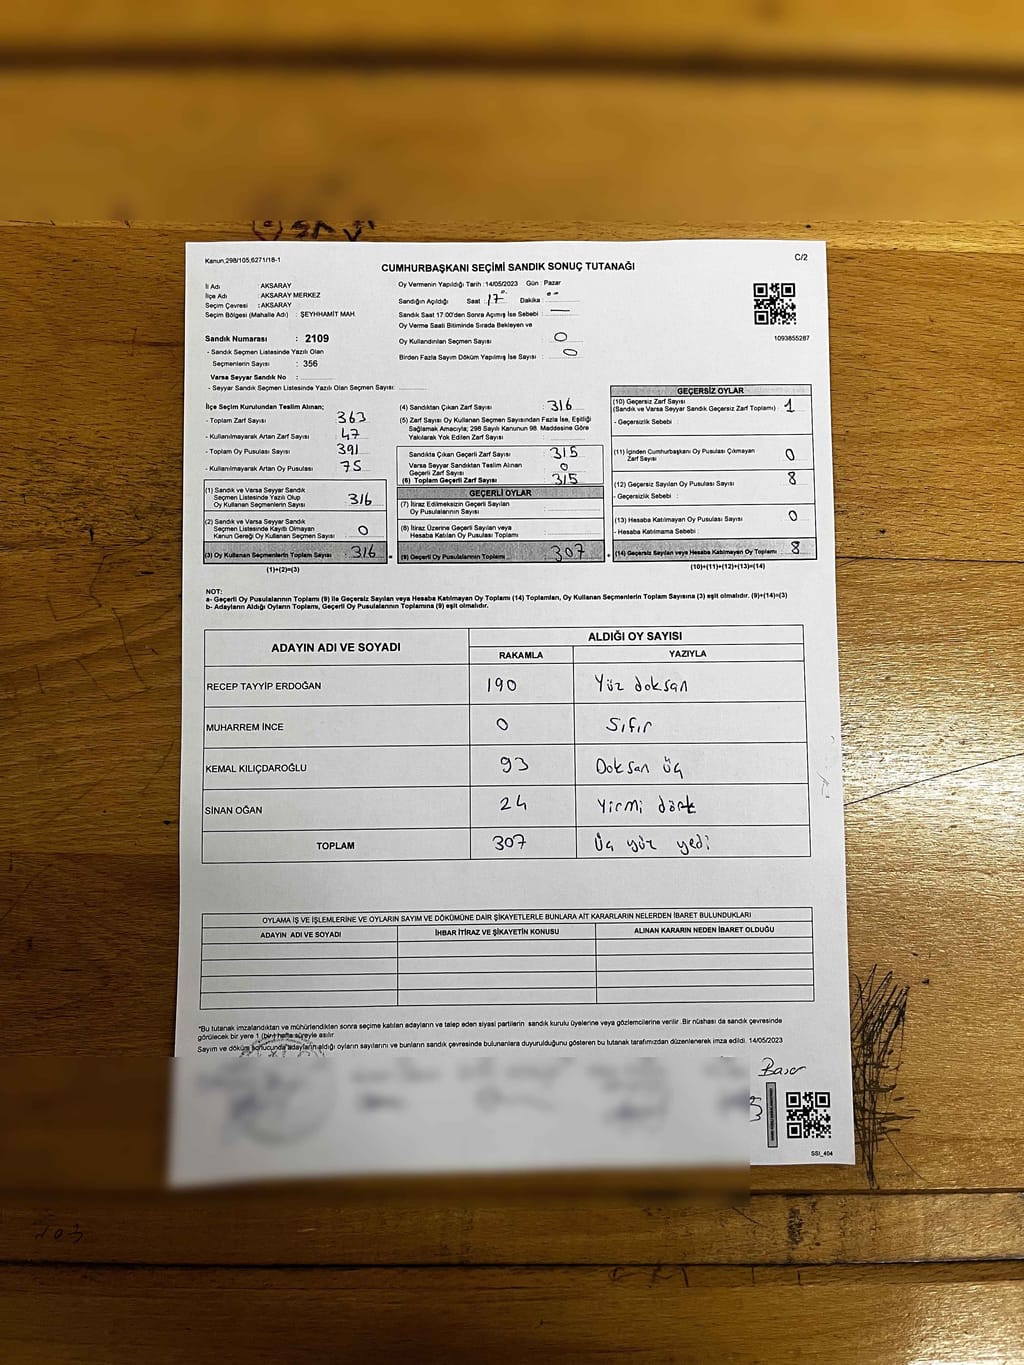 Kanun,298/105;6271/18-1
C/2
CUMHURBAŞKANI SEÇİMİ SANDIK SONUÇ TUTANAĞI
İl Adı : AKSARAY
İlçe Adı : AKSARAY MERKEZ
Seçim Çevresi : AKSARAY
Seçim Bölgesi (Mahalle Adı) : ŞEYHHAMİT MAH.
Sandık Numarası : 2109
- Sandık Seçmen Listesinde Yazılı Olan
Seçmenlerin Sayısı : 356
Varsa Seyyar Sandık No :
- Seyyar Sandık Seçmen Listesinde Yazılı Olan Seçmen Sayısı:
Oy Vermenin Yapıldığı Tarih :14/05/2023 Gün : Pazar
Sandığın Açıldığı Saat : 17 Dakika :
Sandık Saat 17:00'den Sonra Açımış İse Sebebi :
Oy Verme Saati Bitiminde Sırada Bekleyen ve
Oy Kullandırılan Seçmen Sayısı : 0
Birden Fazla Sayım Döküm Yapılmış İse Sayısı : 0
1093855287
İlçe Seçim Kurulundan Teslim Alınan;
- Toplam Zarf Sayısı : 363
- Kullanılmayarak Artan Zarf Sayısı : 47
- Toplam Oy Pusulası Sayısı : 391
- Kullanılmayarak Artan Oy Pusulası : 75
(1) Sandık ve Varsa Seyyar Sandık
Seçmen Listesinde Yazılı Olup
Oy Kullanan Seçmenlerin Sayısı : 316
(2) Sandık ve Varsa Seyyar Sandık
Seçmen Listesinde Kayıtlı Olmayan
Kanun Gereği Oy Kullanan Seçmen Sayısı : 0
(3) Oy Kullanan Seçmenlerin Toplam Sayısı : 316
(1)+(2)=(3)
(4) Sandıktan Çıkan Zarf Sayısı : 316
(5) Zarf Sayısı Oy Kullanan Seçmen Sayısından Fazla İse, Eşitliği
Sağlamak Amacıyla; 298 Sayılı Kanunun 98. Maddesine Göre
Yakılarak Yok Edilen Zarf Sayısı :
Sandıkta Çıkan Geçerli Zarf Sayısı : 315
Varsa Seyyar Sandıktan Teslim Alınan
Geçerli Zarf Sayısı : 0
(6) Toplam Geçerli Zarf Sayısı : 315
GEÇERLİ OYLAR
(7) İtiraz Edilmeksizin Geçerli Sayılan
Oy Pusulalarının Sayısı :
(8) İtiraz Üzerine Geçerli Sayılan veya
Hesaba Katılan Oy Pusulası Toplamı :
(9) Geçerli Oy Pusulalarının Toplamı : 307
GEÇERSİZ OYLAR
(10) Geçersiz Zarf Sayısı
(Sandık ve Varsa Seyyar Sandık Geçersiz Zarf Toplamı) : 1
- Geçersizlik Sebebi :
(11) İçinden Cumhurbaşkanı Oy Pusulası Çıkmayan
Zarf Sayısı : 0
(12) Geçersiz Sayılan Oy Pusulası Sayısı : 8
- Geçersizlik Sebebi :
(13) Hesaba Katılmayan Oy Pusulası Sayısı : 0
- Hesaba Katılmama Sebebi :
(14) Geçersiz Sayılan veya Hesaba Katılmayan Oy Toplamı : 8
(10)+(11)+(12)+(13)=(14)
NOT:
a- Geçerli Oy Pusulalarının Toplamı (9) ile Geçersiz Sayılan veya Hesaba Katılmayan Oy Toplamı (14) Toplamları, Oy Kullanan Seçmenlerin Toplam Sayısına (3) eşit olmalıdır. (9)+(14)=(3)
b- Adayların Aldığı Oyların Toplamı, Geçerli Oy Pusulalarının Toplamına (9) eşit olmalıdır.
ADAYIN ADI VE SOYADI
ALDIĞI OY SAYISI
RAKAMLA YAZIYLA
RECEP TAYYİP ERDOĞAN 190 Yüz doksan
MUHARREM İNCE 0 Sıfır
KEMAL KILIÇDAROĞLU 93 Doksan üç
SİNAN OĞAN 24 Yirmi dört
TOPLAM 307 Üç yüz yedi
OYLAMA İŞ VE İŞLEMLERİNE VE OYLARIN SAYIM VE DÖKÜMÜNE DAİR ŞİKAYETLERLE BUNLARA AİT KARARLARIN NELERDEN İBARET BULUNDUKLARI
ADAYIN ADI VE SOYADI İHBAR İTİRAZ VE ŞİKAYETİN KONUSU ALINAN KARARIN NEDEN İBARET OLDUĞU
*Bu tutanak imzalandıktan ve mühürlendikten sonra seçime katılan adayların ve talep eden siyasi partilerin sandık kurulu üyelerine veya gözlemcilerine verilir. Bir nüshası da sandık çevresinde
görülecek bir yere 1 (bir) hafta süreyle asılır.
Sayım ve döküm sonucunda adayların aldığı oyların sayılarını ve bunların sandık çevresinde bulunanlara duyurulduğunu gösteren bu tutanak tarafımızdan düzenlenerek imza edildi. 14/05/2023
SSI_404